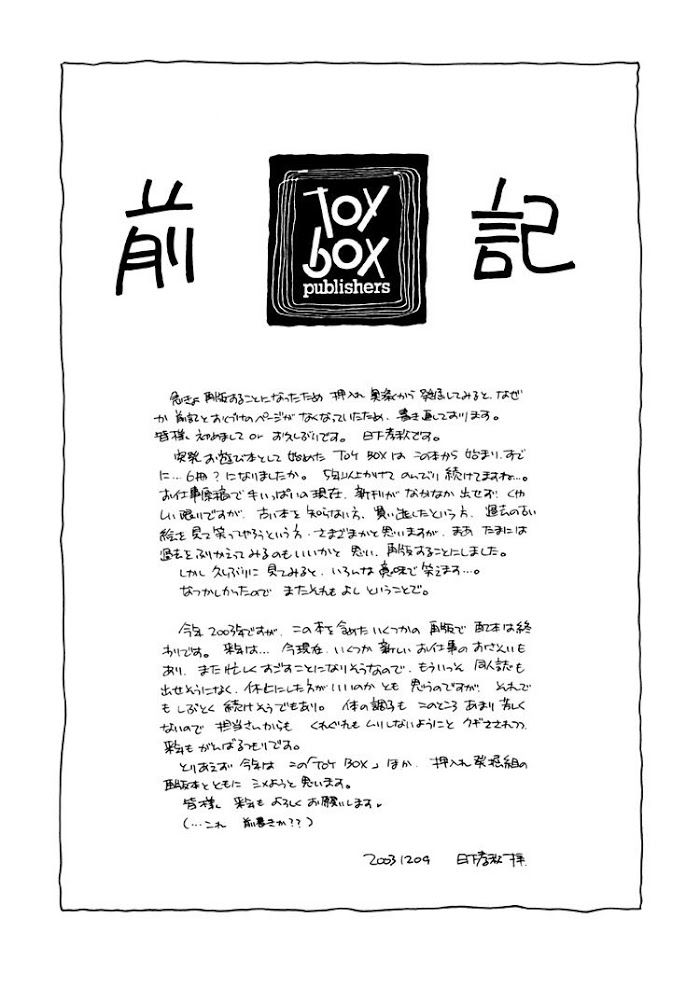 前記
Toy
box
publishers
急きょ 再版することになったため 押入れ 奥深から 発掘してみると、なぜ
か 前記とおくづけのページが なくなっていたため、書き直しております。
皆様、初めまして or お久しぶりです。 日下孝秋です。
突発 お遊び本として 始めた TOY BOXは この本から 始まり、すで
に…6冊？になりましたか。 5年以上かけて のんびり 続けてますね…。
お仕事原稿で 手いっぱいの現在、新刊が なかなか 出せず くや
しい限りですが、古い本を 知らない方、買い逃したという方、過去の古い
絵を見て笑ってやろうという方、さまざまかと思いますが、まあ たまには
過去をふりかえってみるのもいいかと 思い、再版することにしました。
しかし 久しぶりに 見てみると、いろんな意味で 笑えます…。
なつかしかったので またそれも よし ということで。
今年 2003年ですが、この本を含めた いくつかの 再版で 配本は終
わりです。 来年は… 今現在、いくつか 新しい お仕事の おさそいも
あり、また忙しく すごすことになりそうなので、もういっそ 同人誌も
出せそうになく、休止にした方がいいのか とも 思うのですが、それで
も しぶとく 続けそうでもあり。 体の調子も このところ あまり 芳しく
ないので 担当さんからも くれぐれも ムリしないようにと クギさされつつ、
来年も がんばるつもりです。
とりあえず 今年は この「TOY BOX」ほか、押入れ発掘組の
再版本とともに シメようと 思います。
皆様、来年も よろしく お願いします。
(…これ 前書きか??)
20031209 日下孝秋 拝.